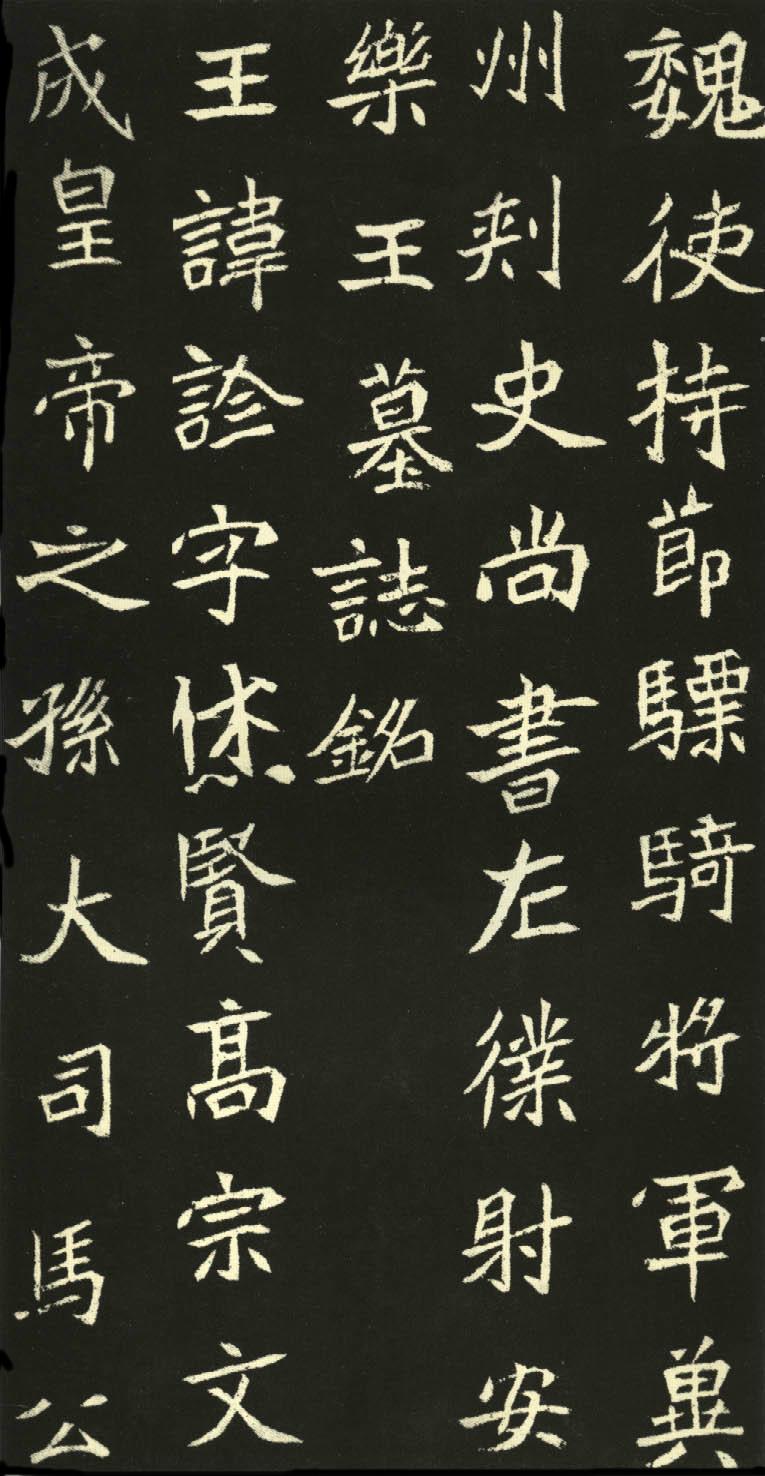 魏使持節驃騎將軍冀
州刾史尚書左僕射安
樂王墓誌銘
王諱詮字休賢高宗文
成皇帝之孫大司馬公